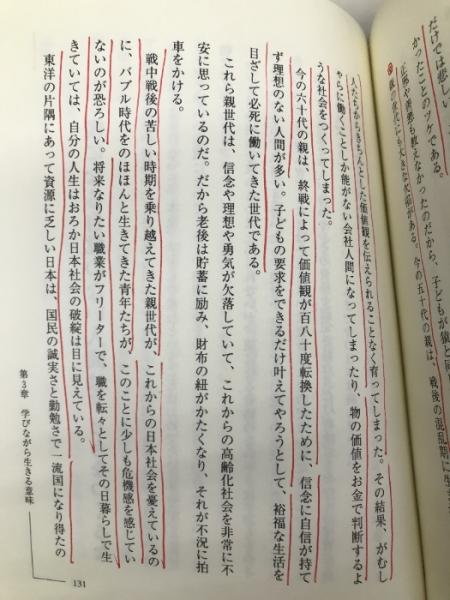 だけでは悲しい
かったことのツケである。
正義や善悪も教えなかったのだから、子どもが猿と同
今の五十代の親は、戦後の混乱期に生
人たちからきちんとした価値観を伝えられることなく育ってしまった。その結果、がむし
ゃらに働くことしか能がない会社人間になってしまったり、物の価値をお金で判断するよ
うな社会をつくってしまった。
今の六十代の親は、終戦によって価値観が百八十度転換したために、信念に自信が持て
ず理想のない人間が多い。子どもの要求をできるだけ叶えてやろうとして、裕福な生活を
目ざして必死に働いてきた世代である。
これら親世代は、信念や理想や勇気が欠落していて、これからの高齢化社会を非常に不
安に思っているのだ。だから老後は貯蓄に励み、財布の紐がかたくなり、それが不況に拍
車をかける。
戦中戦後の苦しい時期を乗り越えてきた親世代が、これからの日本社会を憂えているの
に、バブル時代をのほほんと生きてきた青年たちが、このことに少しも危機感を感じてい
ないのが恐ろしい。将来なりたい職業がフリーターで、職を転々としてその日暮らしで生
きていては、自分の人生はおろか日本社会の破綻は目に見えている。
東洋の片隅にあって資源に乏しい日本は、国民の誠実さと勤勉さで一流国になり得たの
第3章 学びながら生きる意味
131